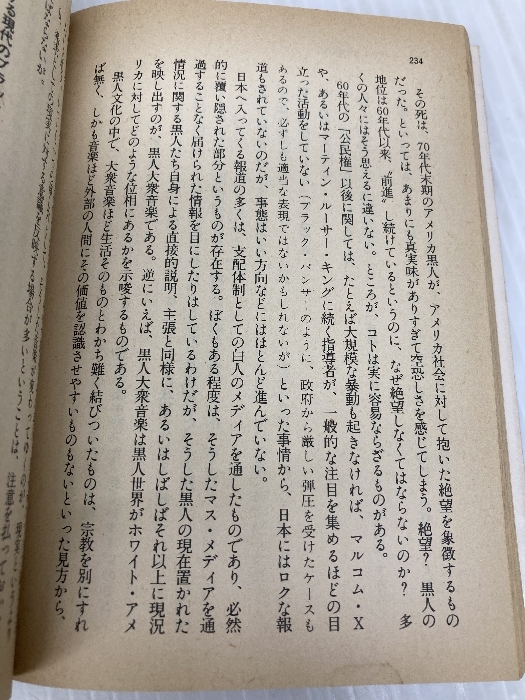 234
その死は、70年代末期のアメリカ黒人が、アメリカ社会に対して抱いた絶望を象徴するもの
だった。といっては、あまりにも真実味がありすぎて空恐しさを感じてしまう。絶望？　黒人の
地位は60年代以来、〝前進〟し続けているというのに、なぜ絶望しなくてはならないのか？　多
くの人々にはそう思えるに違いない。ところが、コトは実に容易ならざるものがある。
60年代の「公民権」以後に関しては、たとえば大規模な暴動も起きなければ、マルコム・X
や、あるいはマーティン・ルーサー・キングに続く指導者が、一般的な注目を集めるほどの目
立った活動をしていない（ブラック・パンサーのように、政府から厳しい弾圧を受けたケースも
あるので、必ずしも適当な表現ではないかもしれないが）といった事情から、日本にはロクな報
道もされていないのだが、事態はいい方向などにはほとんど進んでいない。
日本へ入ってくる報道の多くは、支配体制としての白人のメディアを通したものであり、必然
的に覆い隠された部分というものが存在する。ぼくもある程度は、そうしたマス・メディアを通
過することなく届けられた情報を目にしたりはしているわけだが、そうした黒人の現在置かれた
情況に関する黒人たち自身による直接的説明、主張と同様に、あるいはしばしばそれ以上に現況
を映し出すのが、黒人大衆音楽である。逆にいえば、黒人大衆音楽は黒人世界がホワイト・アメ
リカに対してどのような位相にあるかを示唆するものである。
黒人文化の中で、大衆音楽ほど生活そのものとわかち難く結びついたものは、宗教を別にすれ
ば無く、しかも音楽ほど外部の人間にその価値を認識させやすいものもないといった見方から、